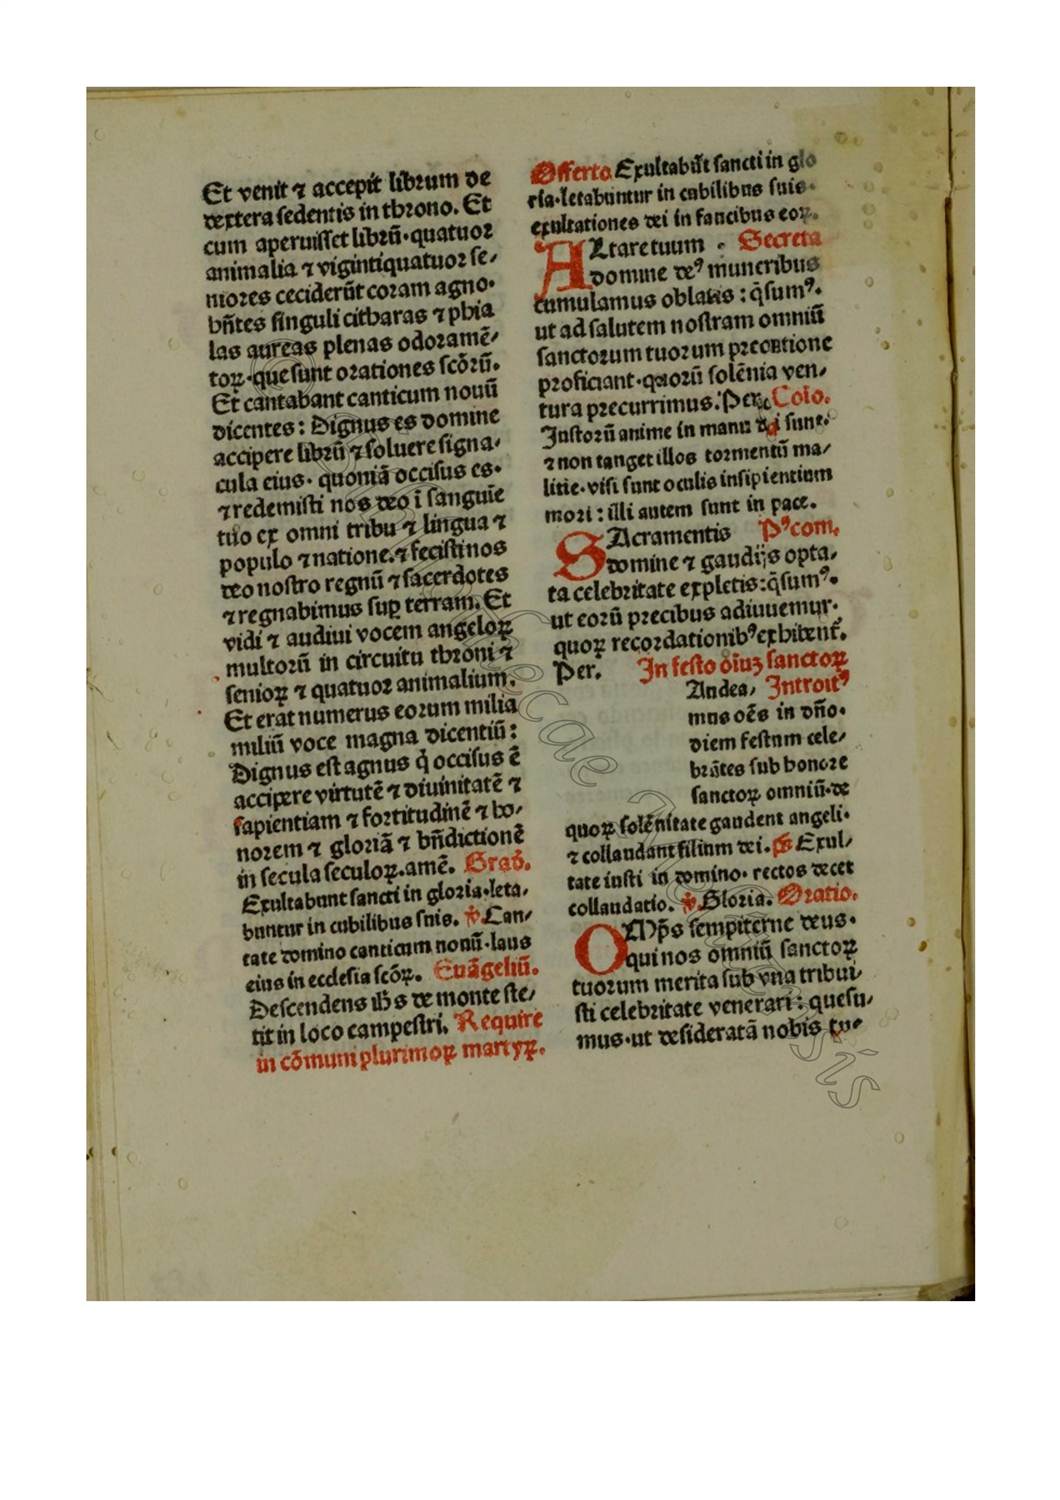 Et venit ⁊ accepit librum de
dextera sedentis in throno. Et
cum aperuisset librū·quatuor
animalia ⁊ vigintiquatuor se/
niores ceciderūt coram agno·
hn̄tes singuli citharas ⁊ phia
las aureas plenas odoramē/
toꝝ·que sunt orationes scōrū.
Et cantabant canticum nouū
dicentes: Dignus es domine
accipere librū ⁊ soluere signa·
cula eius· quoniā occisus es·
⁊ redemisti nos deo ī sanguīe
tuo ex omni tribu ⁊ lingua ⁊
populo ⁊ natione.⁊ fecisti nos
deo nostro regnū ⁊ sacerdotes
⁊ regnabimus suꝑ terram. Et
vidi ⁊ audiui vocem angeloꝝ
multorū in circuitu throni ⁊
senioꝝ ⁊ quatuor animalium.
Et erat numerus eorum milia
miliū voce magna dicentiū:
Dignus est agnus q̇ occisus ē
accipere virtutē ⁊ diuinitatē ⁊
sapientiam ⁊ fortitudinē ⁊ ho/
norem ⁊ gloriā ⁊ bn̄dictionē
in secula seculoꝝ.amē. Graō.
Exultabunt sancti in gloria·leta/
buntur in cubilibus suis. ℣ Can/
tate domino canticum nouū·laus
eius in ecclesia scōꝝ. Euāgeliū.
Descendens ih̄s de monte ste/
tit in loco campestri. Require
in cōmum plurimoꝝ martyꝝ.
Offerto Exultabūt sancti in glo
ria·letabuntur in cubilibus suis·
exultationes dei in faucibus eoꝝ.
ALtare tuum · Secreta
domine deꝰ muneribus
cumulamus oblatis : q̄sumꝰ.
ut ad salutem nostram omniū
sanctorum tuorum precatione
proficiant·quorū solēnia ven/
tura precurrimus. Per. Cōio.
Justorū anime in manu dei sunt·
⁊ non tanget illos tormentū ma/
litie·visi sunt oculis insipientium
mori : illi autem sunt in pace.
SAcramentis Pꝰcom.
domine ⁊ gaudijs opta/
ta celebritate expletis:q̄sumꝰ.
ut eorū precibus adiuuemur·
quoꝝ recordationibꝰexhibent̄.
Per. In festo oīuꝫ sanctoꝝ
Audea/ Introitꝰ
mus oēs in dn̄o·
diem festum cele/
brātes sub honore
sanctoꝝ omniū·de
quoꝝ solēnitate gaudent angeli·
⁊ collaudant filium dei. ps̄ Exul/
tate iusti in domino· rectos decet
collaudatio. ℣ Gloria. Oratio.
OMp̄s sempiterne deus·
qui nos omniū sanctoꝝ
tuorum merita sub vna tribui/
sti celebritate venerari : quesu/
mus·ut desideratā nobis tue